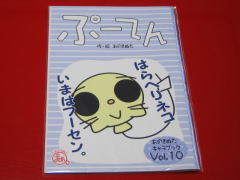 ぷーてん
作・絵 おがきぬた
はらぺりネコ
いまはプーセン。
おがきぬた
キャラブック
Vol.10